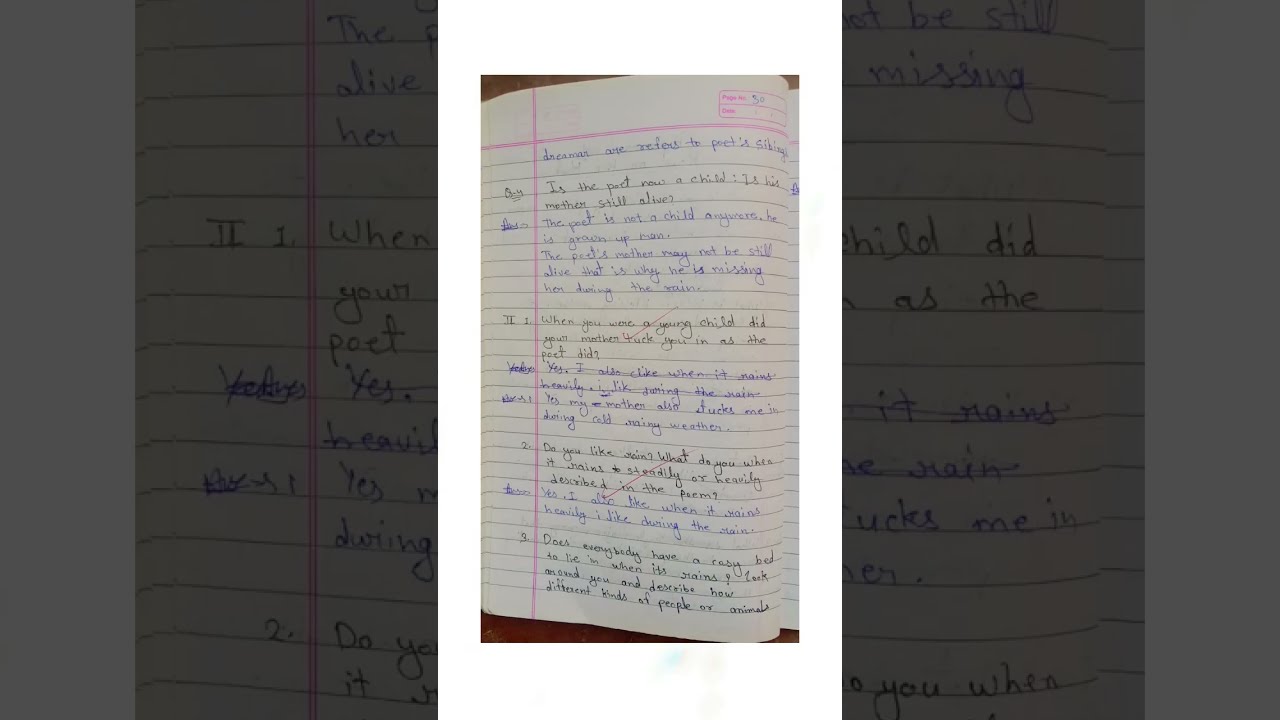 Page No. 30
Date
dreamar are refers to poet's sibing
Q.4 Is the poet now a child? Is his
mother still alive?
Ans:- The poet is not a child anymore. he
is grown up man.
The poet's mother may not be still
alive that is why he is missing
her during the rain.
II 1. When you were a young child did
your mother tuck you in as the
poet did?
Yes. I also clike when it rains
heavily. i lik during the rain
Ans1 Yes my mother also tucks me in
during cold rainy weather.
2. Do you like rain? What do you when
it rains steadily or heavily
described in the poem?
Ans:- Yes, I also like when it rains
heavily i like during the rain.
3. Does everybody have a casy bed
to lie in when its rains? look
around you and describe how
different kinds of people or animals